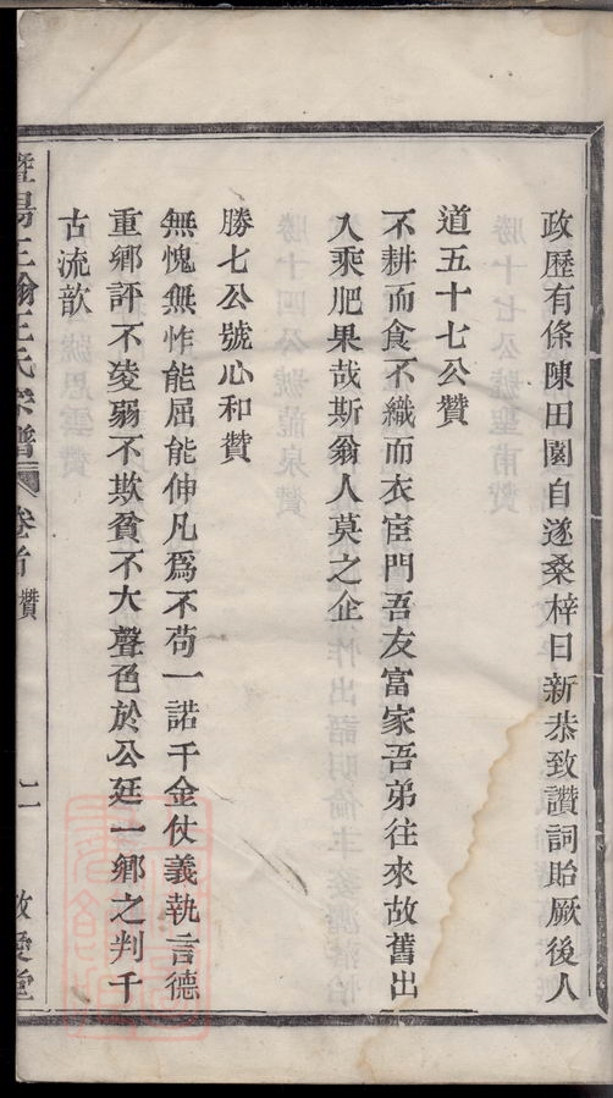 政歷有條陳田園自遂桑梓日新恭致讚詞貽厥後人
道五十七公贊
不耕而食不織而衣宦門吾友富家吾弟往來故舊出
入乘肥果哉斯翁人莫之企
勝七公號心和贊
無愧無怍能屈能伸凡爲不苟一諾千金仗義執言德
重鄉評不凌弱不欺貧不大聲色於公廷一鄉之判千
古流歆
暨陽王氏宗譜 卷首 贊 二 敬愛堂